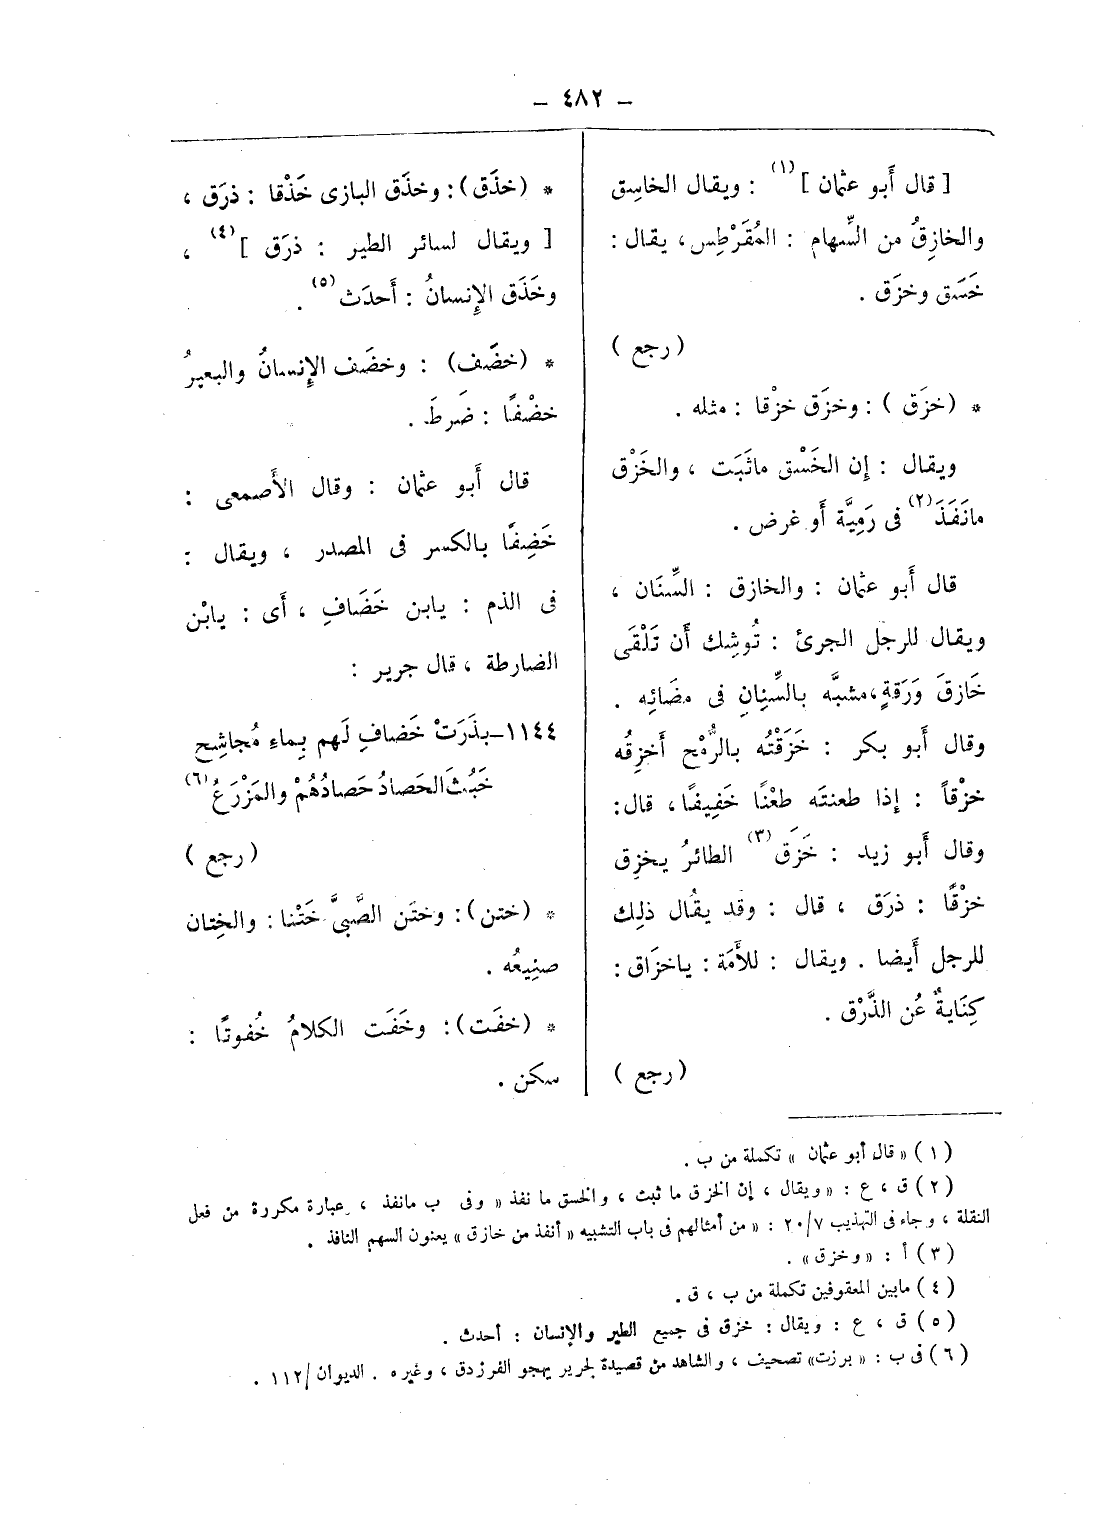 ـ ٤٨٢ ـ
[ قال أَبو عثمان ](١) : ويقال الخاسِق
والخازِقُ من السِّهام : المُقَرْطِس، يقال :
خَسَق وخزَق .
( رجع )
* (خزَق ) : وخزَق خزْقا : مثله .
ويقال : إن الخَسْق ماثَبَت ، والخَزْق
مانَفَذَ(٢) فى رَمِيَّة أَو غرض .
قال أَبو عثمان : والخازق : السِّنَان ،
ويقال للرجل الجرئ : تُوشِك أَن تَلْقَى
خَازقَ وَرَقةٍ، مشبَّه بالسِّنِانِ فى مضَائِه .
وقال أَبو بكر : خَزَقْتُه بالرُّمْح أَخزِقُه
خزْقاً : إذا طعنتَه طعْنًا خَفِيفًا ، قال :
وقال أَبو زيد : خَزَق(٣) الطائرُ يخزِق
خزْقًا : ذرَق ، قال : وقد يقُال ذلِك
للرجل أَيضا . ويقال : للأَمَة : ياخزَاق :
كِنَايةٌ عُن الذَّرْق .
( رجع )
* (خذَق ) : وخذَق البازى خَذْقا : ذرَق ،
[ ويقال لسائر الطير : ذرَق ](٤) ،
وخَذَق الإِنسانُ : أَحدَث(٥) .
* (خضَف) : وخضَف الإِنسانُ والبعيرُ
خضْفًا : ضَرطَ .
قال أَبو عثمان : وقال الأَصمعى :
خَضِفًا بالكسر فى المصدر ، ويقال :
فى الذم : يابن خَضَافِ ، أَى : يابْن
الضارطة ، قال جرير :
١١٤٤ـ بذَرَتْ خَضافِ لَهم بِماءِ مُجاشِح
خَبُثَ الحَصادُ حَصادُهُمْ والمَزْرَعُ(٦)
( رجع )
* (ختن ) : وختَن الصَّبىَّ خَتْنا : والخِتان
صنِيعُه .
* (خفَت ) : وخَفَت الكلامُ خُفوتًا :
سكن .
( ١ ) « قال أبو عثمان » تكملة من ب .
( ٢ ) ق ، ع : « ويقال ، إن الخزق ما ثبت ، والخسق ما نفذ « وفى ب مانفذ ، عبارة مكررة من فعل
النقلة ، وجاء فى التهذيب ٢٠/٧ : « من أمثالهم فى باب التشبيه « أنفذ من خازق » يعنون السهم النافذ .
( ٣ ) أ : « وخزق » .
( ٤ ) مابين المعقوفين تكملة من ب ، ق .
( ٥ ) ق ، ع : ويقال : خزق فى جميع الطير والإنسان : أحدث .
( ٦ ) فى ب : « برزت» تصحيف ، والشاهد من قصيدة لجرير يهجو الفرزدق ، وغيره . الديوان /١١٢ .